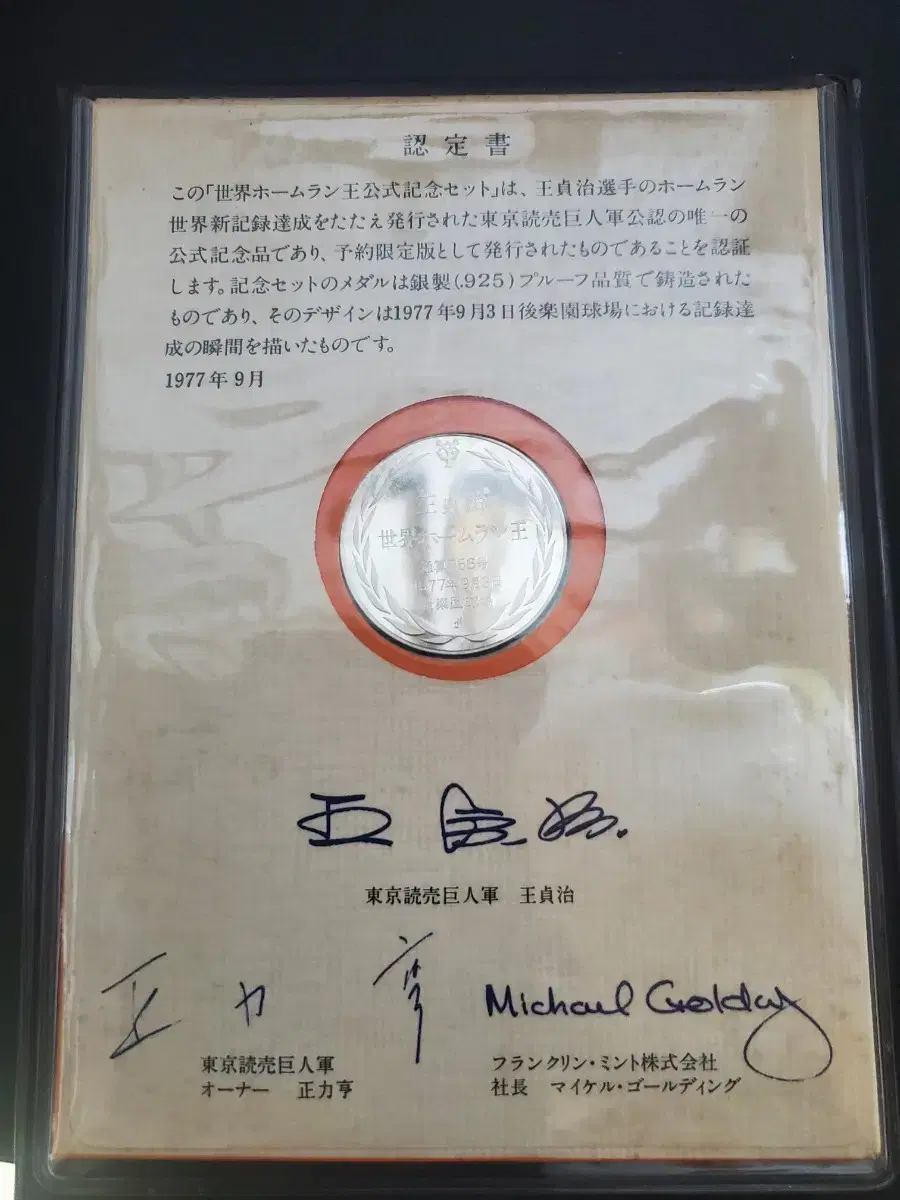 認定書
この「世界ホームラン王公式記念セット」は、王貞治選手のホームラン
世界新記録達成をたたえ発行された東京読売巨人軍公認の唯一の
公式記念品であり、予約限定版として発行されたものであることを認証
します。記念セットのメダルは銀製(.925)プルーフ品質で鋳造された
ものであり、そのデザインは1977年9月3日後楽園球場における記録達
成の瞬間を描いたものです。
1977年9月
王貞治
世界ホームラン王
1977年9月3日
王貞治
東京読売巨人軍 王貞治
正力亨
Michael Golding
東京読売巨人軍
オーナー 正力亨
フランクリン・ミント株式会社
社長 マイケル・ゴールディング